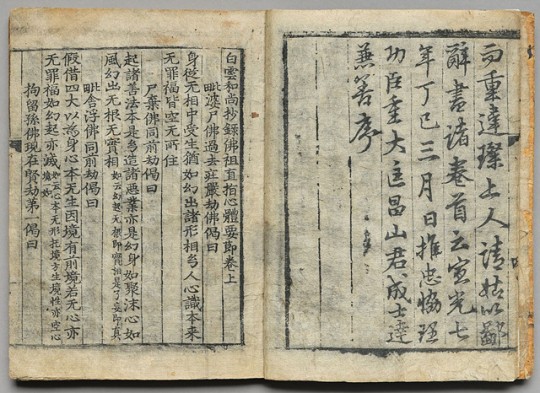 而重違璨上人請姑以鄙
辭書諸卷首云宣光七
年丁巳三月日推忠協理
功臣重大匡昌山君成士達
兼善序
白雲和尚抄錄佛祖直指心體要節卷上
毗婆尸佛過去莊嚴劫佛偈曰
身從无相中受生猶如幻出諸形相幻人心識本來
无罪福皆空无所住
尸棄佛同前劫偈曰
起諸善法本是幻造諸惡業亦是幻身如聚沫心如
風幻出无根无實相
毗舍浮佛同前劫偈曰
假借四大以爲身心本无生因境有前境若无心亦
无罪福如幻起亦滅
拘留孫佛現在賢劫第一偈曰